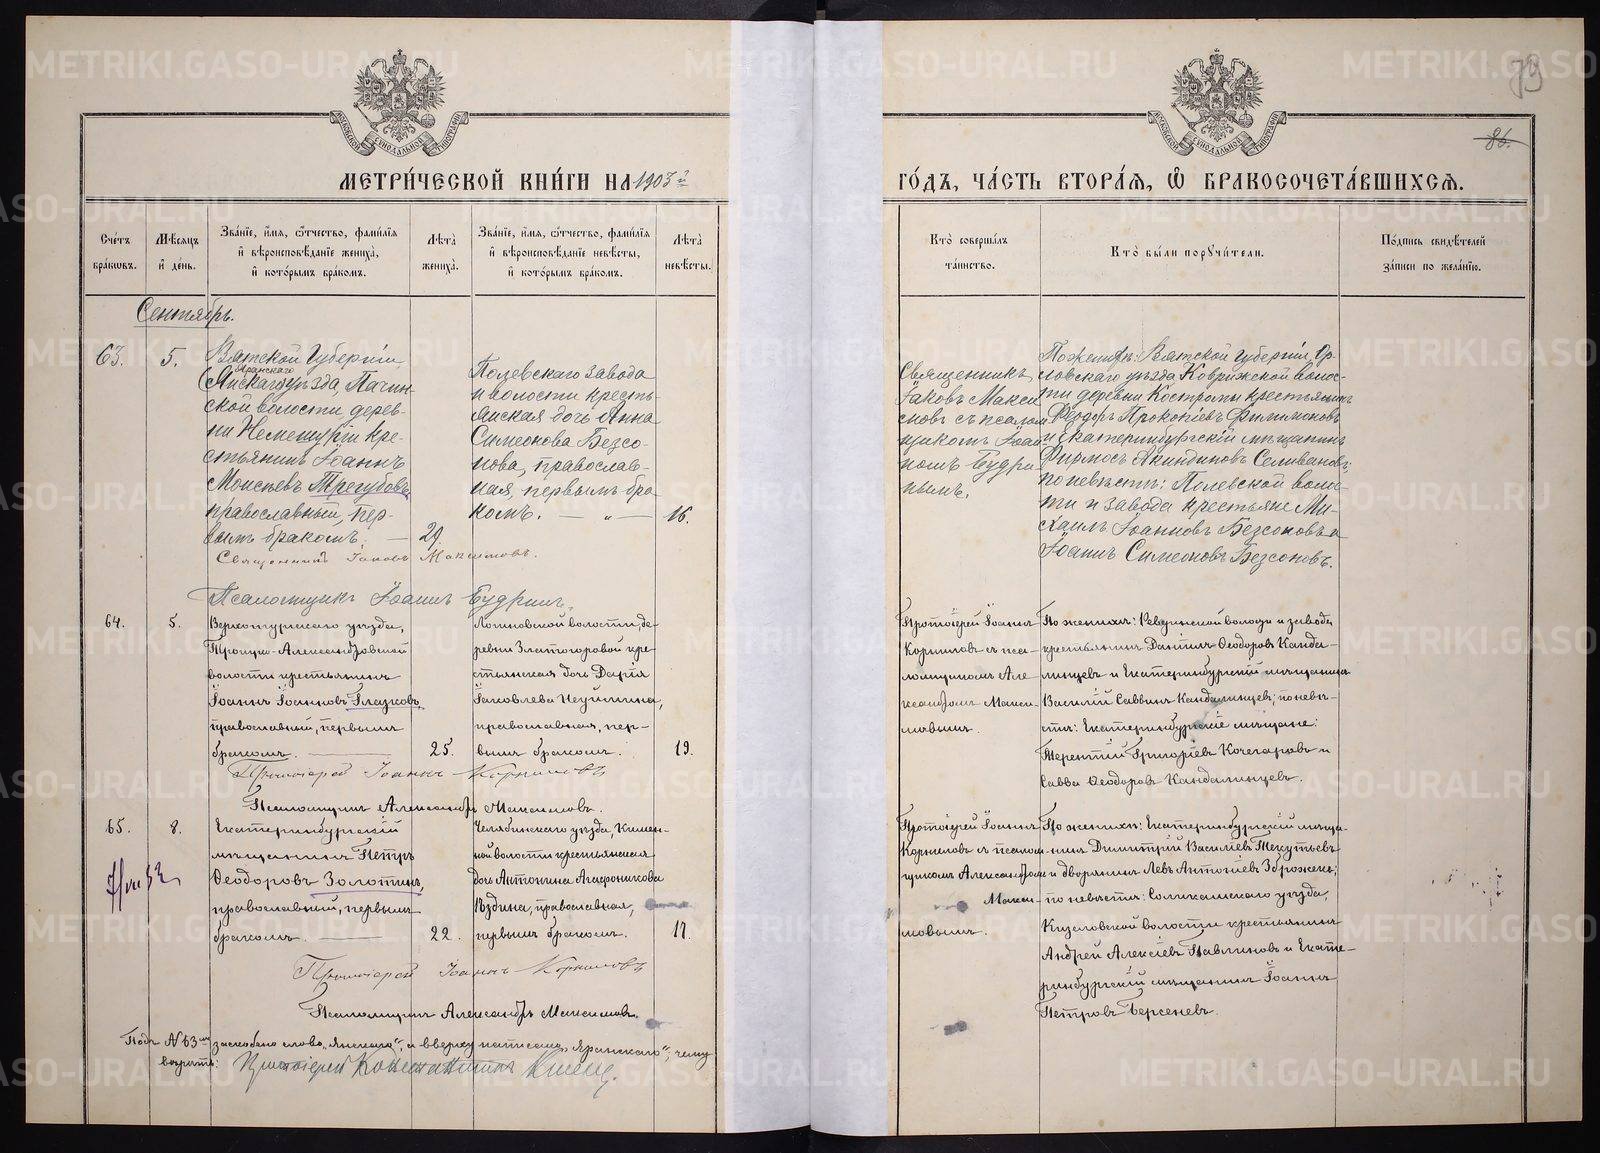 METRIKI.GASO-URAL.RU
79
86.
МОСКОВСКОЙ СѴНОДАЛЬНОЙ ТИПОГРАФІИ
МЕТРИ́ЧЕСКОЙ КНИ́ГИ НА 1903й
ГО́ДЪ, ЧА́СТЬ ВТОРА́Ѧ, Ѽ БРАКОСОЧЕТА́ВШИХСѦ.
Сче́тъ бра́ковъ.
Мѣ́сяцъ и҆ де́нь.
Зва́нїе, и҆́мя, ѻ҆́тчество, фами́лїя
и҆ вѣроисповѣ́данїе жениха̀,
и҆ кото́рымъ бра́комъ.
Лѣ́та жениха̀.
Зва́нїе, и҆́мя, ѻ҆́тчество, фами́лїя
и҆ вѣроисповѣ́данїе невѣ́сты,
и҆ кото́рымъ бра́комъ.
Лѣ́та невѣ́сты.
Кто̀ соверша́лъ
та́инство.
Кто̀ бы́ли порꙋчи́тели.
По́дпись свидѣ́телей
за́писи по жела́нїю.
Сентябрь.
63.
5.
Вятской губерніи,
Яранскаго
(Янскаго) уѣзда, Пачин-
ской волости, дерев-
ни кре-
стьянинъ Іоаннъ
Моисеевъ Трегубовъ,
православный, пер-
вымъ бракомъ. —
29.
Полевскаго завода
и волости кресть-
янская дочь Анна
Симеонова Безсо-
нова, православ-
ная, первымъ бра-
комъ. — „ —
16.
Священникъ
Іаковъ Макси
мовъ съ псалом
щикомъ Іоан
номъ Будри
нымъ.
По женихѣ: Вятской губерніи, Ор-
ловскаго уѣзда Коврижской волос-
ти деревни Костромы крестьянинъ
Ѳеодоръ Прокопіевъ Филимоновъ
и Екатеринбургскій мѣщанинъ
Фирмосъ Акиндиновъ Селивановъ;
по невѣстѣ: Полевской волос-
ти и завода крестьяне Ми-
хаилъ Іоанновъ Безсоновъ и
Іоаннъ Симеоновъ Безсоновъ.
Священникъ Іаковъ Максимовъ.
Псаломщикъ Іоаннъ Будринъ.
64.
5.
Верхотурскаго уѣзда,
Троицко-Александровской
волости крестьянинъ
Іоаннъ Іоанновъ Глазковъ,
православный, первымъ
бракомъ. —
25.
Логиновской волости, де-
ревни Златогоровой кре-
стьянская дочь Дарія
Іаковлева Неуймина,
православная, пер-
вымъ бракомъ.
19.
Протоіерей Іоаннъ
Корниловъ съ пса-
ломщикомъ Але
ксандромъ Макси-
мовымъ.
По женихѣ: Ревдинской волости и завода
крестьянинъ Даніилъ Ѳеодоровъ Канда-
линцевъ и Екатеринбургскій мѣщанинъ
Василій Саввинъ Кандалинцевъ; по невѣ-
стѣ: Екатеринбургскіе мѣщане:
Терентій Григоріевъ Кочегаровъ и
Савва Ѳеодоровъ Кандалинцевъ.
Протоіерей Іоаннъ Корниловъ
Псаломщикъ Александръ Максимовъ.
65.
8.
Екатеринбургскій
мѣщанинъ Петръ
Ѳеодоровъ Золотинъ,
православный, первымъ
бракомъ. —
22.
Челябинскаго уѣзда, Кипен-
ной волости крестьянская
дочь Антонина Агаѳоникова
Ѣздина, православная,
первымъ бракомъ.
17.
Протоіерей Іоаннъ
Корниловъ съ псалом-
щикомъ Александромъ
Макси-
мовымъ.
По женихѣ: Екатеринбургскій мѣща-
нинъ Димитрій Василіевъ Текутьевъ
и дворянинъ Левъ Антоніевъ Зброжекъ;
по невѣстѣ: Соликамскаго уѣзда,
Кизеловской волости крестьянинъ
Андрей Алексіевъ Павлиновъ и Екате-
ринбургскій мѣщанинъ Іоаннъ
Петровъ Берсеневъ.
Протоіерей Іоаннъ Корниловъ
Псаломщикъ Александръ Максимовъ.
Подъ №63мъ заскоблено слово „Янскаго", а вверху написано „Яранскаго", чему
вѣрить: Протоіерей Константинъ